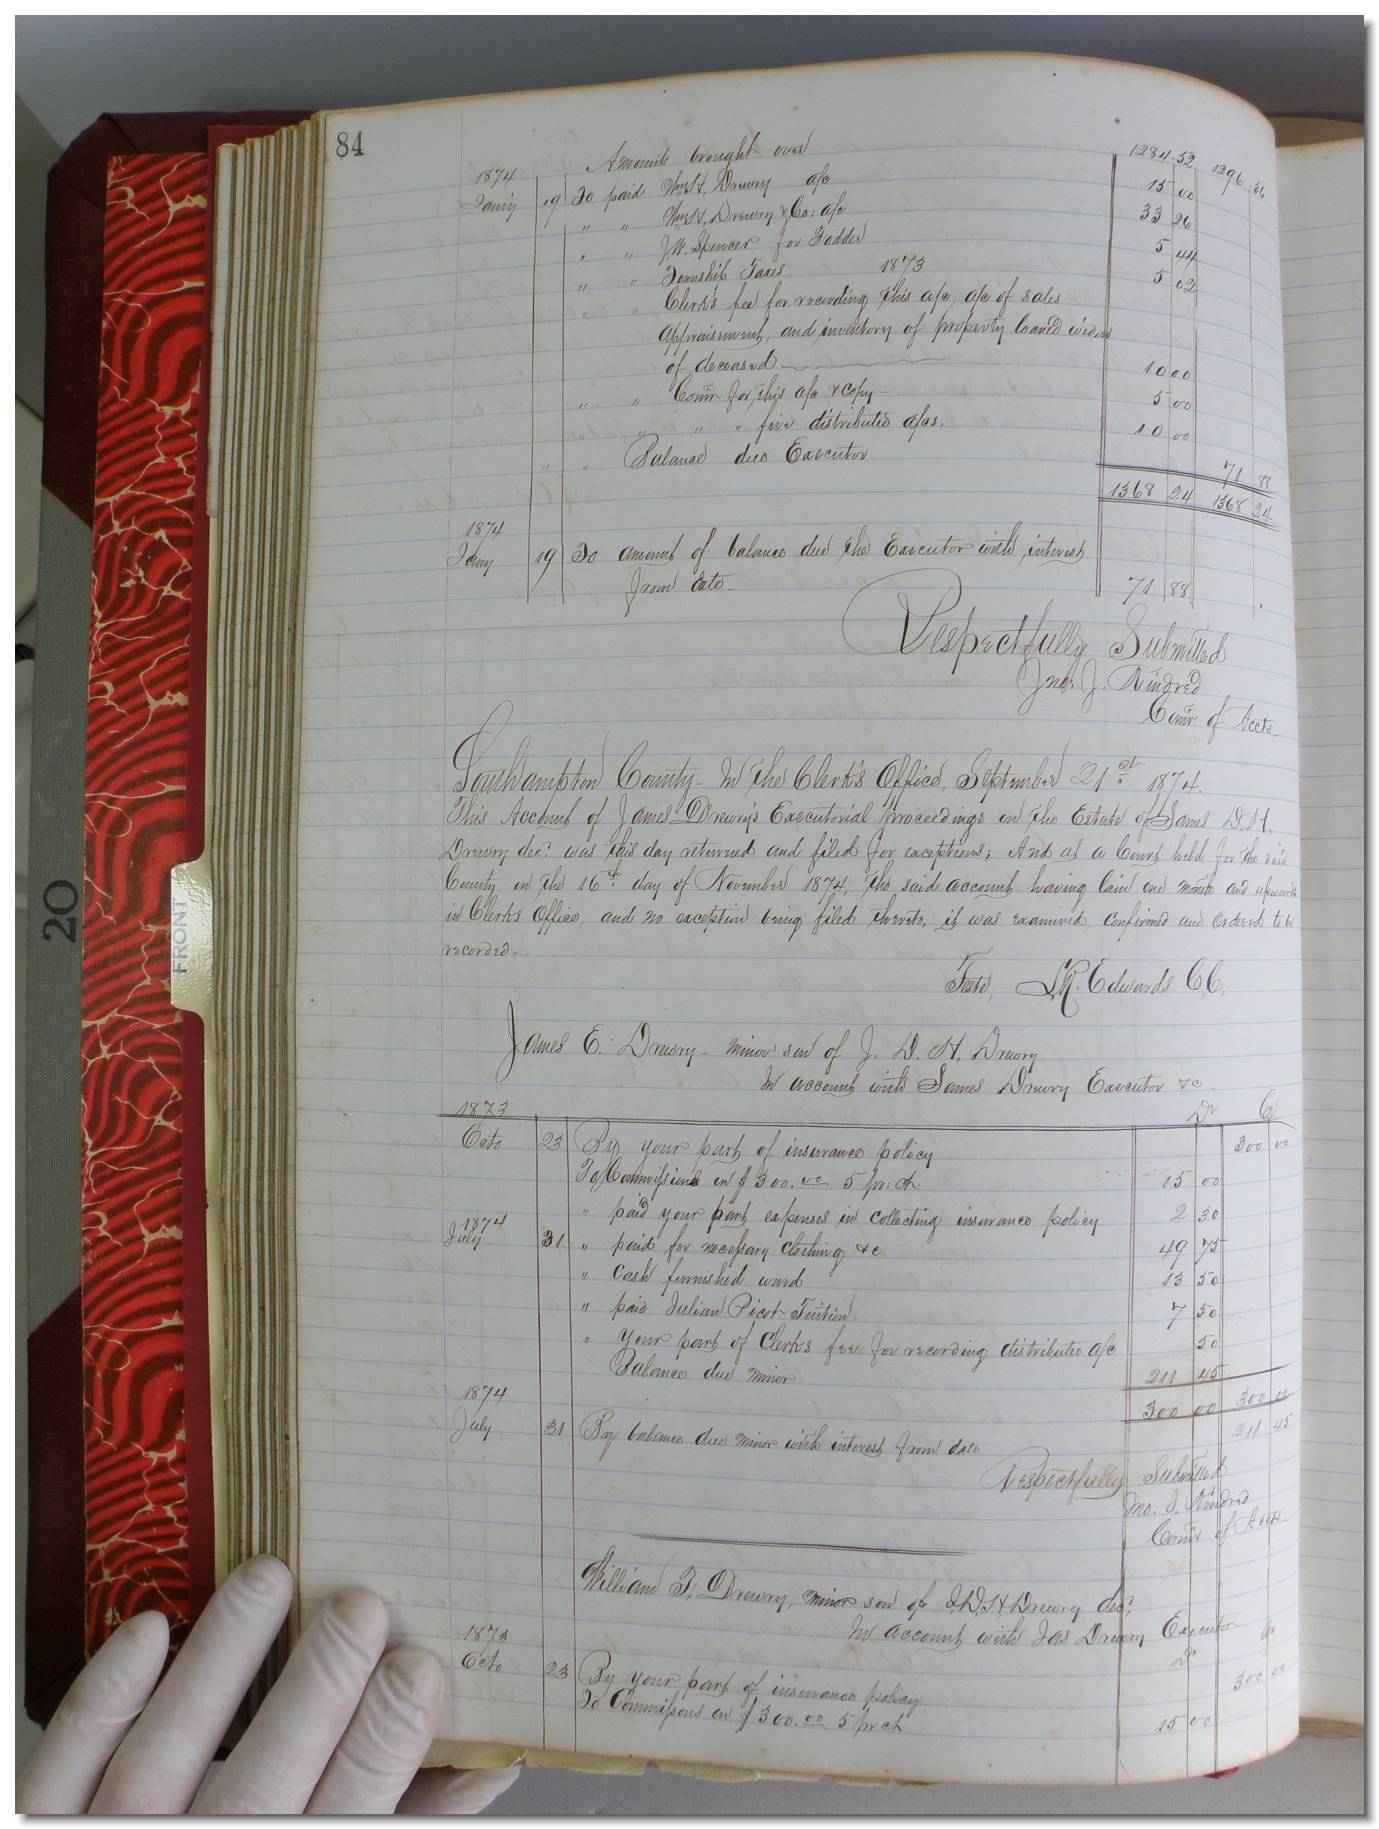 84
Amounts brought over 1284.52 1296.36
1874
Jany 19 To paid Wm H. Drewry a/c 15 00
" " Wm H. Drewry & Co: a/c 33 26
" " J. W. Spencer for Fodder 5 44
" " Township Taxes 1873 5 02
" " Clerk's fee for recording this a/c, a/c of sales
appraisement, and inventory of property loaned widow
of deceased 10 00
" " Comr for this a/c & copy 5 00
" " " " five distributed a/cs. 10 00
" " Balance due Executor 71 88
1368 24 1368 24
1874
Jany 19 To amount of balance due the Executor with interest
from date 71 88
Respectfully Submitted
Jno. J. Kindred
Comr of Accts
Southampton County - In the Clerk's Office, September 21st 1874.
This Account of James Drewry's Executorial proceedings on the Estate of James D. H.
Drewry decd was this day returned and filed for exceptions; And at a Court held for the said
County on the 16th day of November 1874, the said account having lain one month and upwards
in Clerks Office, and no exception being filed thereto, it was examined, confirmed and Ordered to be
recorded-
Teste, L.R. Edwards C.C.
James E. Drewry - minor son of J. D. H. Drewry
In account with James Drewry Executor &c
1873 Dr Cr
Octo 23 By your part of insurance policy 300 00
To Commissions on $300.00 5 pr: ct: 15 00
" paid your part expenses in collecting insurance policy 2 30
1874
July 31 " paid for necessary clothing &c 49 75
" Cash furnished ward 13 50
" paid Julian Picot Tuition 7 50
" your part of Clerks fee for recording distributed a/c 50
Balance due minor 211 45
300 00 300 00
1874
July 31 By balance due minor with interest from date 211 45
Respectfully Submitted
Jno: J. Kindred
Comr of Accts
William T. Drewry, minor son of J.D.H Drewry decd,
In account with Jas Drewry Executor
1873 Dr Cr
Octo 23 By your part of insurance policy 300 00
To Commissions on $300.00 5 pr ct 15 00
20
FRONT